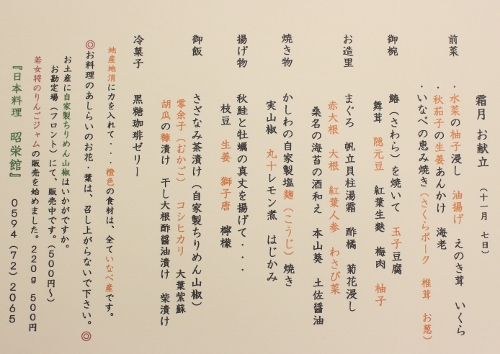 霜月 お献立 (十一月 七日)
前菜 ・水菜の柚子浸し 油揚げ えのき茸 いくら
・秋茄子の生姜あんかけ 海老
・いなべの恵み焼き(さくらポーク 椎茸 お葱)
御椀 鰆(さわら)を焼いて 玉子豆腐
舞茸 隠元豆 紅葉生麩 梅肉 柚子
お造里 まぐろ 帆立貝柱湯霜 酢橘 菊花浸し
赤大根 大根 紅葉人参 わさび菜
桑名の海苔の酒和え 本山葵 土佐醤油
焼き物 かしわの自家製塩麹(こうじ)焼き
実山椒 丸十レモン煮 はじかみ
揚げ物 秋鮭と牡蠣の真丈を揚げて・・・
枝豆 生姜 獅子唐 檸檬
御飯 さざなみ茶漬け(自家製ちりめん山椒)
零余子(むかご) コシヒカリ 大葉紫蘇
胡瓜の糠漬け 干し大根酢醤油漬け 柴漬け
冷菓子 黒糖珈琲ゼリー
地産地消に力を入れて・・・橙色の食材は、全ていなべ産です。
◎お料理のあしらいのお花・葉は、召し上がらないで下さい。◎
お土産に自家製ちりめん山椒はいかがですか。
お勘定場(フロント)にて、販売中です。(500円~)
若女将のりんごジャムの販売を始めました。220g 500円
『日本料理 昭栄館』 0594(72)2065